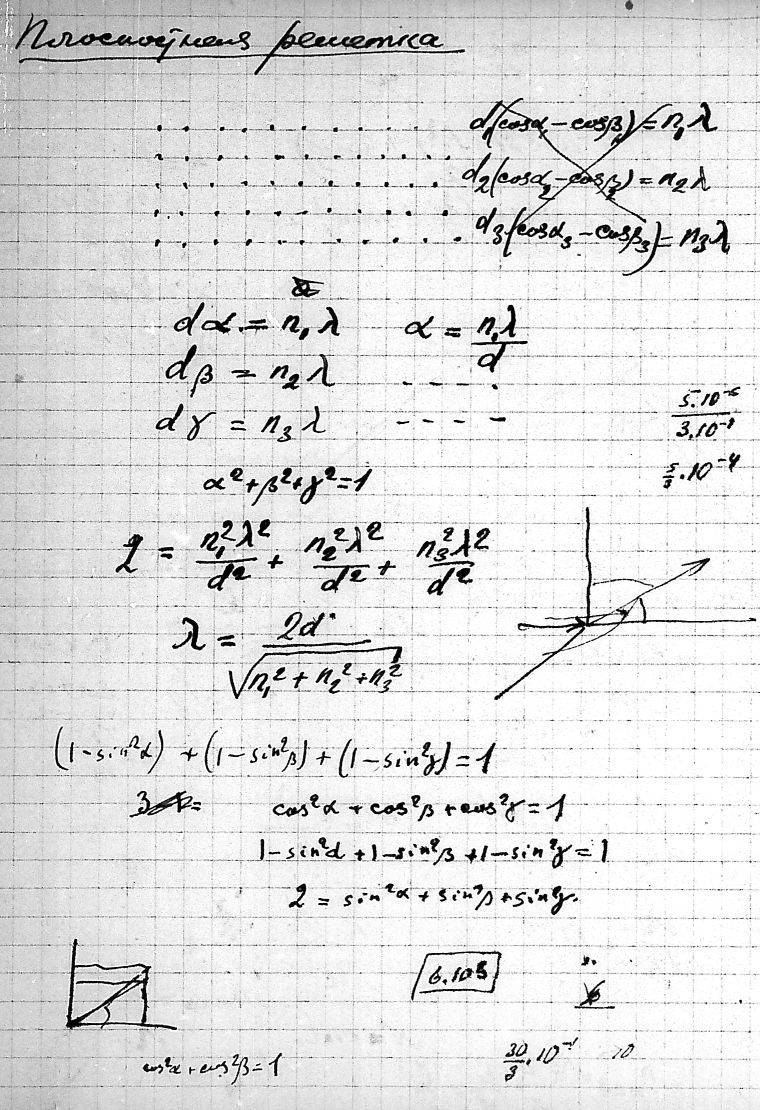 решетка
d₁(cosα₁ – cosβ₁) = n₁λ
d₂(cosα₂ – cosβ₂) = n₂λ
d₃(cosα₃ – cosβ₃) = n₃λ
dα = n₁λ α = n₁λ/d
dβ = n₂λ - - - -
dγ = n₃λ - - - -
5·10⁻⁵/3·10⁻¹
5/3·10⁻⁴
α² + β² + γ² = 1
2 = n₁²λ²/d² + n₂²λ²/d² + n₃²λ²/d²
λ = 2d/√(n₁² + n₂² + n₃²)
(1 – sin²α) + (1 – sin²β) + (1 – sin²γ) = 1
cos²α + cos²β + cos²γ = 1
1 – sin²α + 1 – sin²β + 1 – sin²γ = 1
2 = sin²α + sin²β + sin²γ.
30/3·10⁻¹ 10
cos²α + cos²β = 1